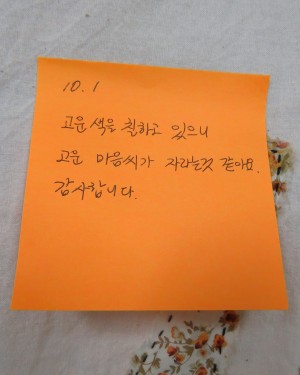 10.1
고운 색을 칠하고 있으니
고운 마음씨가 자라는것 같아요.
감사합니다.